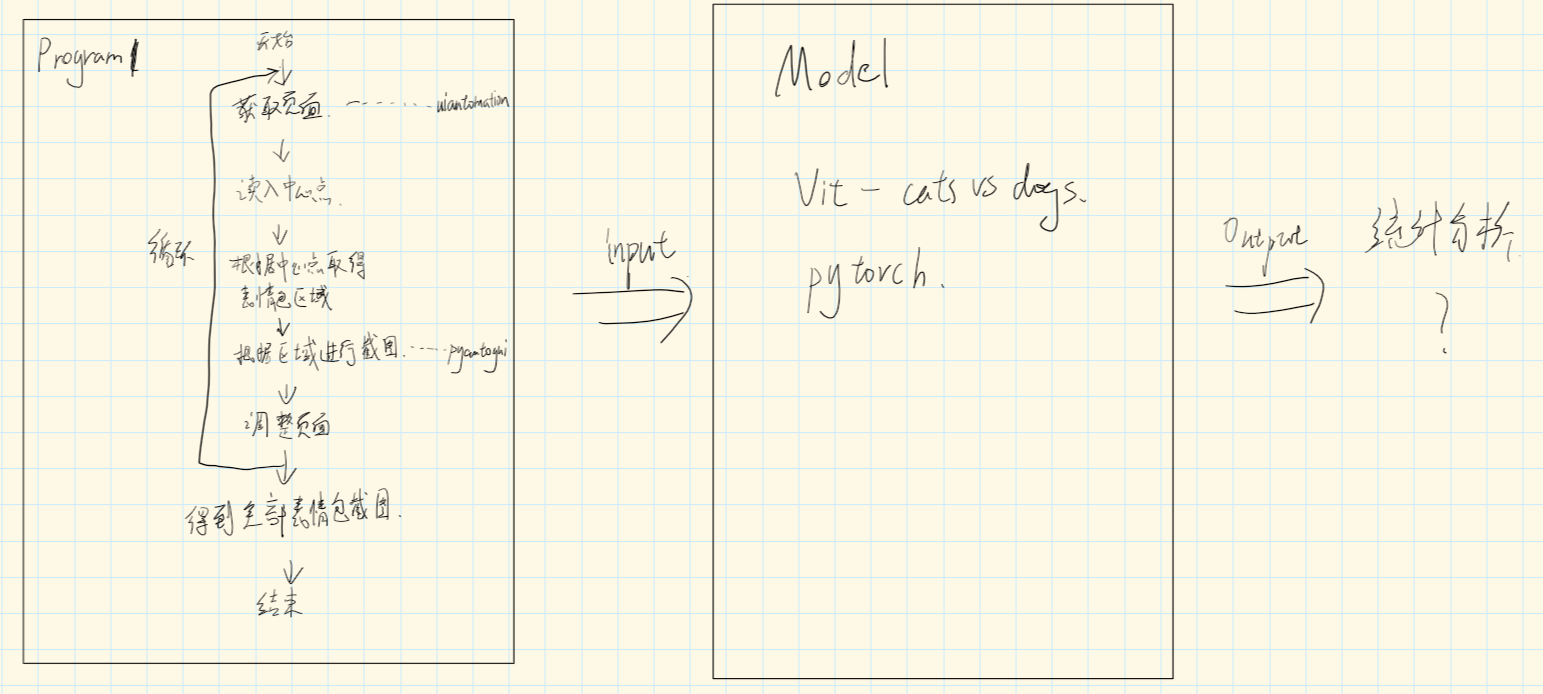 Program 1
开始
获取页面. -------- uiautomation
读入中心点.
循环
根据中心点取得
表情包区域
根据区域进行截图. ----- pyautogui
调整页面
得到全部表情包截图.
结束
input
Model
Vit - cats vs dogs.
pytorch.
Output
统计分析
?